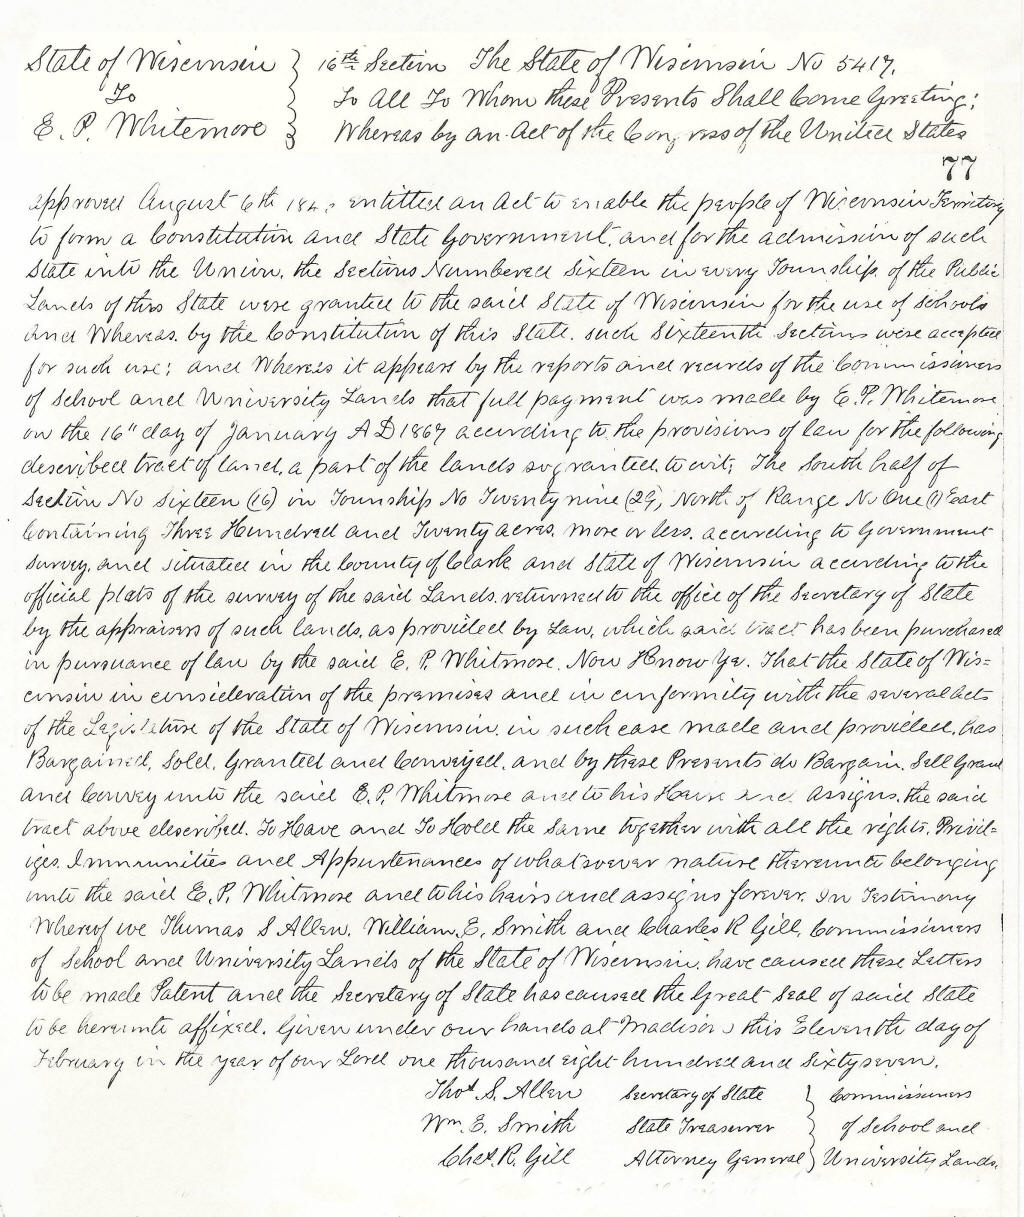 State of Wisconsin } 16th Section The State of Wisconsin No 5417.
To
To All To Whom these Presents Shall Come Greeting;
E. P. Whitemore
Whereas by an Act of the Congress of the United States
77
approved August 6th 184 entitled an Act to enable the people of Wisconsin Territory
to form a Constitution and State Government, and for the admission of such
State into the Union, the Sections Numbered Sixteen in every Township, of the Public
Lands of this State were granted to the said State of Wisconsin for the use of Schools
and Whereas, by the Constitution of this State, such Sixteenth Sections were accepted
for such use; and Whereas it appears by the reports and records of the Commissioners
of School and University Lands that full payment was made by E. P. Whitemore
on the 16" day of January A D 1867 according to the provisions of law for the following
described tract of land, a part of the lands so granted, to wit; The South half of
Section No Sixteen (16) in Township No Twenty nine (29) North, of Range No One (1) East
Containing Three Hundred and Twenty acres, more or less, according to Government
survey, and situated in the County of Clark and State of Wisconsin according to the
official plats of the survey of the said Lands, returned to the office of the Secretary of State
by the appraisers of such lands, as provided by Law, which said tract has been purchased
in pursuance of law by the said E. P. Whitmore, Now Know Ye. That the State of Wis=
consin in consideration of the premises and in conformity with the several Acts
of the Legislature of the State of Wisconsin, in such case made and provided, has
Bargained, Sold, Granted and Conveyed, and by these Presents do Bargain, Sell Grant
and Convey unto the said E. P. Whitmore and to his Heirs and Assigns, the said
tract above described. To Have and To Hold the Same together with all the rights, Privil=
iges, Immunities and Appurtenances of whatsoever nature thereunto belonging
unto the said E. P. Whitmore and to his heirs and assigns forever. In Testimony
Whereof we Thomas S Allen, William E. Smith and Charles R Gill, Commissioners
of School and University Lands of the State of Wisconsin, have caused these Letters
to be made Patent and the Secretary of State has caused the Great Seal of said State
to be hereunto affixed. Given under our hands at Madison this Eleventh day of
February in the year of our Lord one thousand eight hundred and Sixty seven.
Thos. S. Allen Secretary of State } Commissioners
Wm. E. Smith State Treasurer } of School and
Chas. R. Gill Attorney General } University Lands.